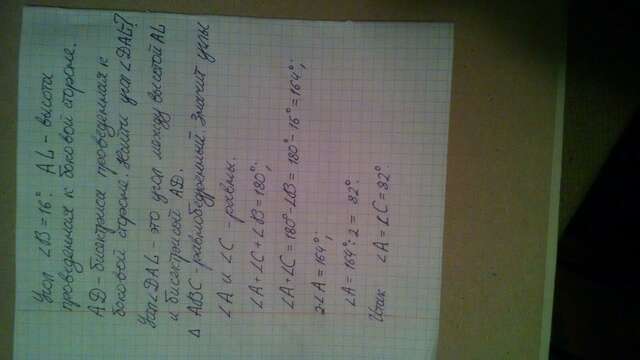 Угол ∠B = 16°. AL - высота
проведенная к боковой стороне.
AD - биссектриса проведенная к
боковой стороне. Найти угол ∠DAL?
Угол ∠DAL - это угол между высотой AL
и биссектрисой AD.
Δ ABC - равнобедренный. Значит углы
∠A и ∠C - равны.
∠A + ∠C + ∠B = 180°;
∠A + ∠C = 180° - ∠B = 180° - 16° = 164°;
2∠A = 164°;
∠A = 164° : 2 = 82°.
Итак ∠A = ∠C = 82°